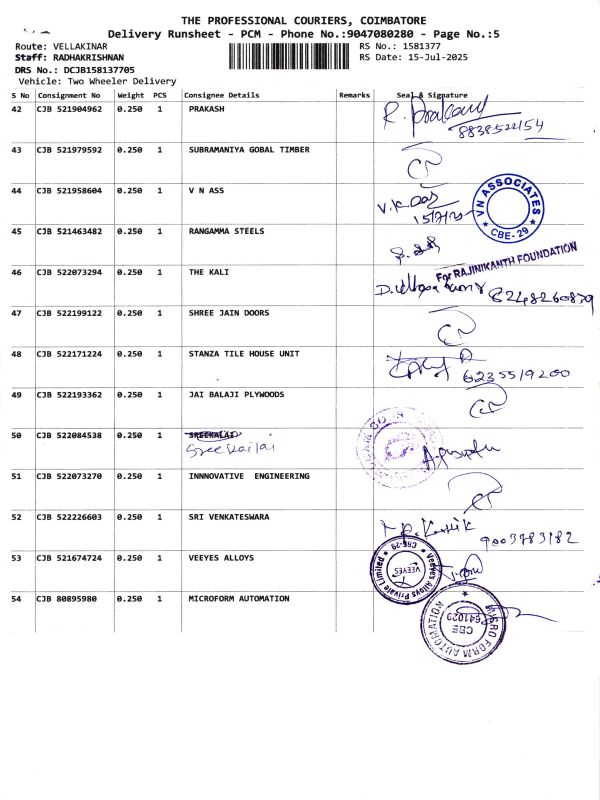 THE PROFESSIONAL COURIERS, COIMBATORE
Delivery Runsheet - PCM - Phone No.:9047080280 - Page No.:5
Route: VELLAKINAR RS No.: 1581377
Staff: RADHAKRISHNAN RS Date: 15-Jul-2025
DRS No.: DCJB158137705
Vehicle: Two Wheeler Delivery
S No Consignment No Weight PCS Consignee Details Remarks Seal & Signature
42 CJB 521904962 0.250 1 PRAKASH R. Prakash
8838522154
43 CJB 521979592 0.250 1 SUBRAMANIYA GOBAL TIMBER
44 CJB 521958604 0.250 1 V N ASS
VN ASSOCIATES
CBE-29
45 CJB 521463482 0.250 1 RANGAMMA STEELS
For RAJINIKANTH FOUNDATION
46 CJB 522073294 0.250 1 THE KALI
8248260879
47 CJB 522199122 0.250 1 SHREE JAIN DOORS
48 CJB 522171224 0.250 1 STANZA TILE HOUSE UNIT
6235519200
49 CJB 522193362 0.250 1 JAI BALAJI PLYWOODS
50 CJB 522084538 0.250 1 SREEKALAI
51 CJB 522073270 0.250 1 INNNOVATIVE ENGINEERING
52 CJB 522226603 0.250 1 SRI VENKATESWARA
9003783182
53 CJB 521674724 0.250 1 VEEYES ALLOYS
Veeyes Alloys Private Limited
CBE-29
VEEYES
54 CJB 80895980 0.250 1 MICROFORM AUTOMATION
MICRO FORM AUTOMATION
CBE
641029